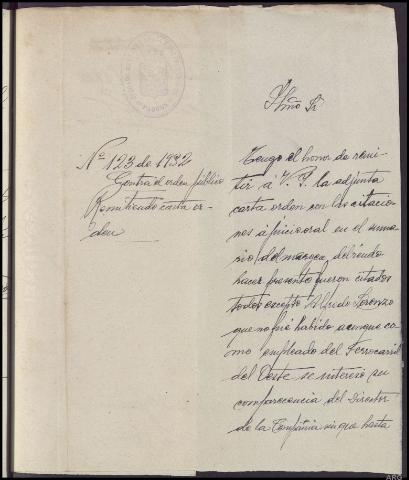 Ilmo Sr
Nº 123 de 1932
Contra el orden público
Remitiendo carta or-
den
Tengo el honor de remi-
tir á V. I. la adjunta
carta orden con las citacio-
nes á juicio oral en el suma-
rio del margen, debiendo
hacer presente fueron citados
todos excepto Alfredo Lorenzo
que no fué habido aunque co-
mo empleado del Ferrocarril
del Oeste se interesó su
comparecencia del Director
de la Compañia sin que hasta